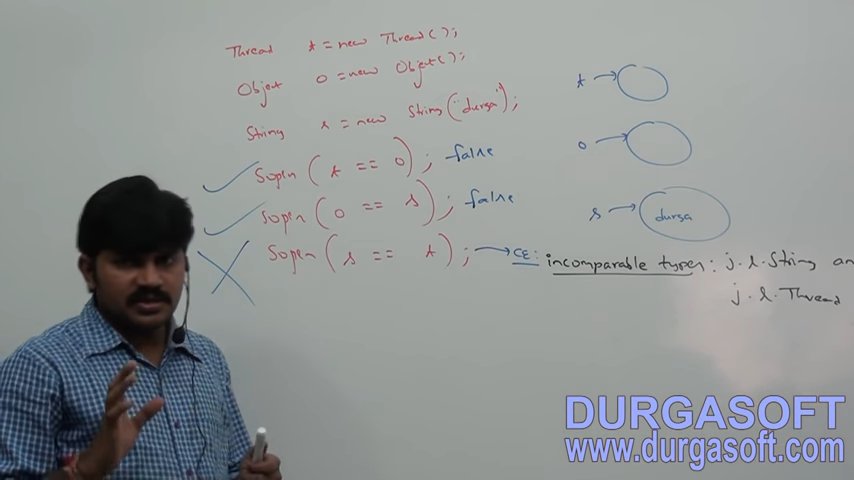 Thread t = new Thread();
Object o = new Object();
String s = new String("durga");
Sopln (t == o); false
Sopln (o == s); false
Sopln (s == t); → CE: incomparable types: j.l.String an
j.l.Thread
t →
o →
s → durga
DURGASOFT
www.durgasoft.com